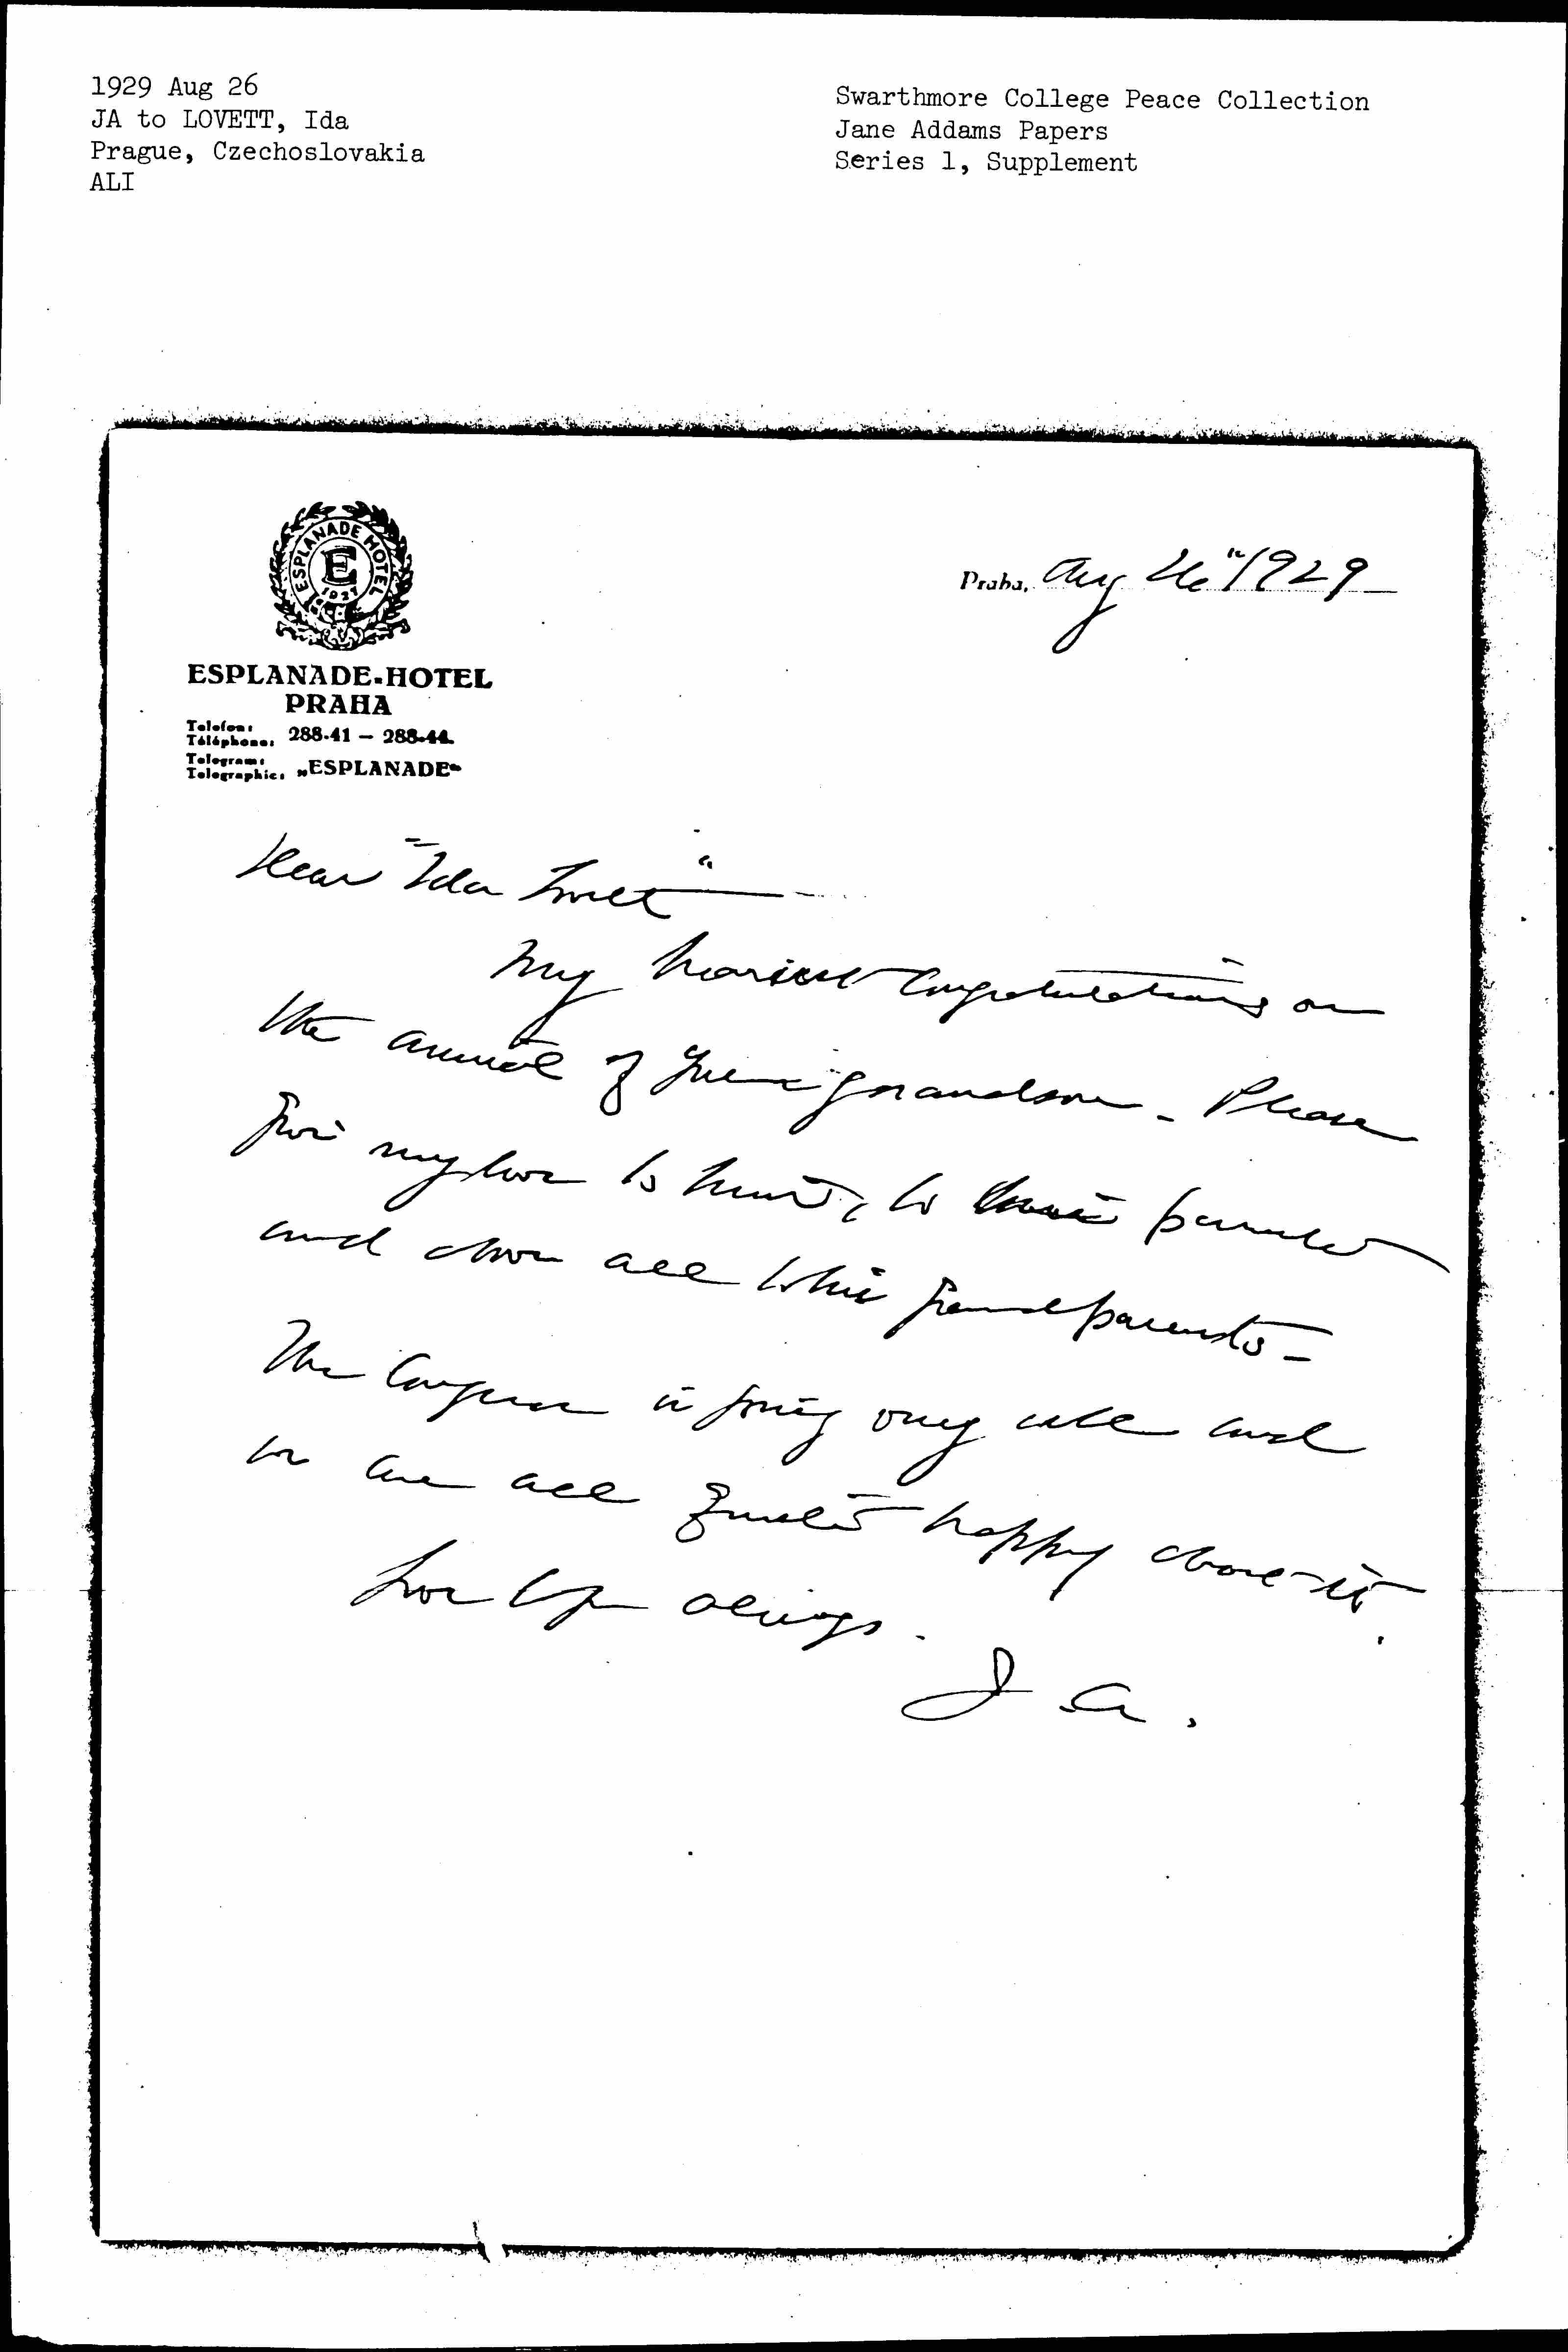 1929 Aug 26
JA to LOVETT, Ida
Prague, Czechoslovakia
ALI
Swarthmore College Peace Collection
Jane Addams Papers
Series 1, Supplement
ESPLANADE HOTEL
E
1927
ESPLANADE-HOTEL
PRAHA
Telefon:
Téléphone: 288-41 — 288-44.
Telegram:
Telegraphic: „ESPLANADE“
Praha, Aug 26" 1929
Dear "Ida Lovett"
My heartiest congratulations on
the arrival of your grandson – Please
give my love to him, to his parents
and above all to his grandparents –
The Congress is going very well and
we are all quite happy about it.
Love to you always.
J A.